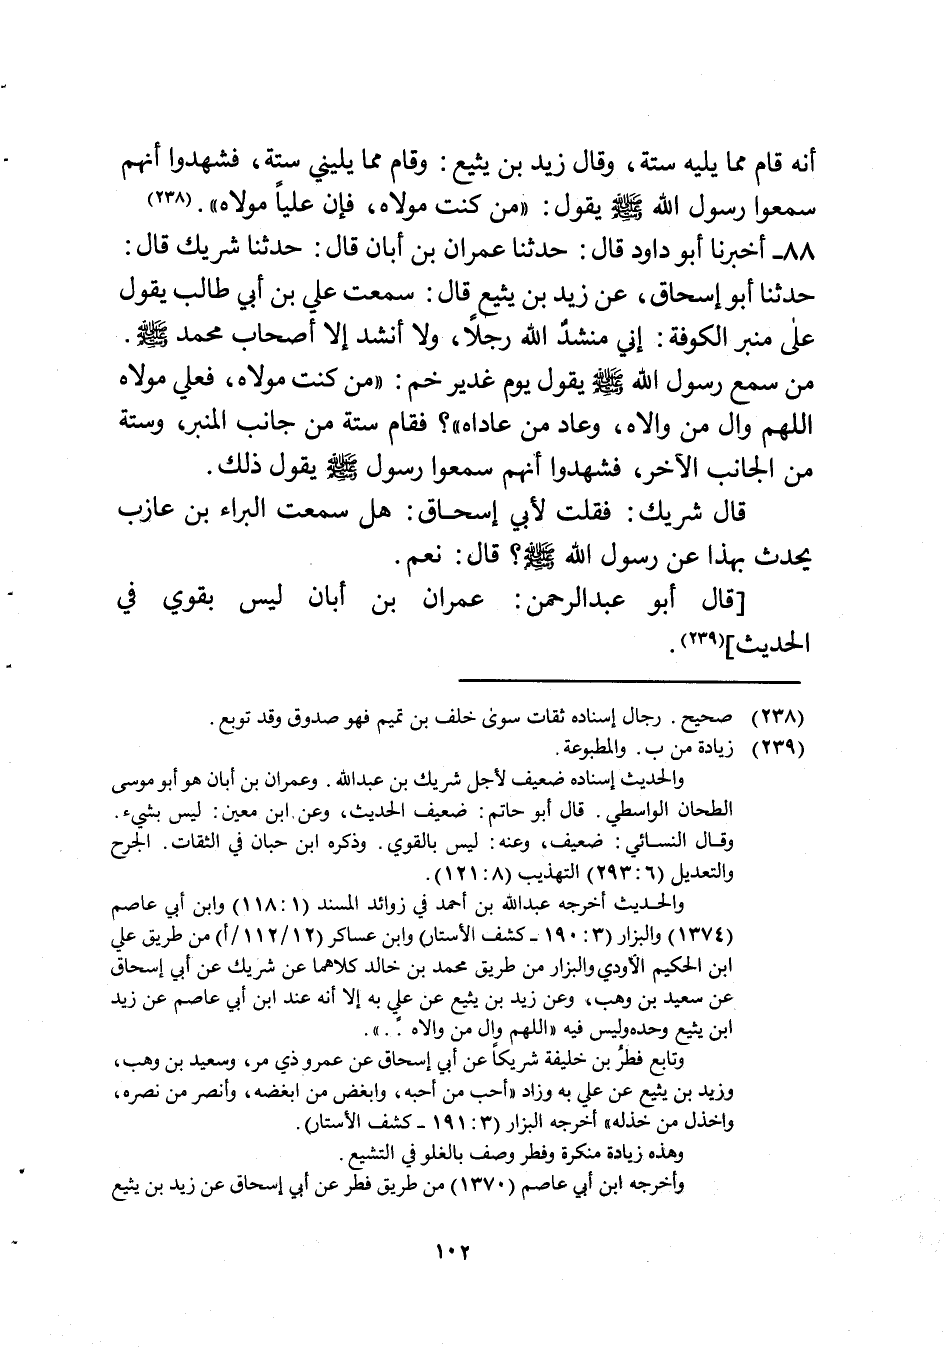 أنه قام مما يليه ستة، وقال زيد بن يثيع: وقام مما يليني ستة، فشهدوا أنهم
سمعوا رسول الله ﷺ يقول: «من كنت مولاه، فإن علياً مولاه». (٢٣٨)
٨٨ـ أخبرنا أبو داود قال: حدثنا عمران بن أبان قال: حدثنا شريك قال:
حدثنا أبو إسحاق، عن زيد بن يثيع قال: سمعت علي بن أبي طالب يقول
على منبر الكوفة: إني منشدٌ الله رجلاً، ولا أنشد إلا أصحاب محمد ﷺ.
من سمع رسول الله ﷺ يقول يوم غدير خم: «من كنت مولاه، فعلي مولاه
اللهم وال من والاه، وعاد من عاداه»؟ فقام ستة من جانب المنبر، وستة
من الجانب الآخر، فشهدوا أنهم سمعوا رسول ﷺ يقول ذلك.
قال شريك: فقلت لأبي إسحاق: هل سمعت البراء بن عازب
يحدث بهذا عن رسول الله ﷺ؟ قال: نعم.
[قال أبو عبدالرحمن: عمران بن أبان ليس بقوي في
الحديث](٢٣٩).
(٢٣٨) صحيح. رجال إسناده ثقات سوى خلف بن تميم فهو صدوق وقد توبع.
(٢٣٩) زيادة من ب. والمطبوعة.
والحديث إسناده ضعيف لأجل شريك بن عبدالله. وعمران بن أبان هو أبو موسى
الطحان الواسطي. قال أبو حاتم: ضعيف الحديث، وعن ابن معين: ليس بشيء.
وقال النسائي: ضعيف، وعنه: ليس بالقوي. وذكره ابن حبان في الثقات. الجرح
والتعديل (٦: ٢٩٣) التهذيب (٨: ١٢١).
والحديث أخرجه عبدالله بن أحمد في زوائد المسند (١: ١١٨) وابن أبي عاصم
(١٣٧٤) والبزار (٣: ١٩٠ ـ كشف الأستار) وابن عساكر (١٢/ ١١٢/أ) من طريق علي
ابن الحكيم الأودي والبزار من طريق محمد بن خالد كلاهما عن شريك عن أبي إسحاق
عن سعيد بن وهب، وعن زيد بن يثيع عن علي به إلا أنه عند ابن أبي عاصم عن زيد
ابن يثيع وحده وليس فيه «اللهم وال من والاه ...».
وتابع فطرُ بن خليفة شريكاً عن أبي إسحاق عن عمرو ذي مر، وسعيد بن وهب،
وزيد بن يثيع عن علي به وزاد «أحب من أحبه، وابغض من ابغضه، وأنصر من نصره،
واخذل من خذله» أخرجه البزار (٣: ١٩١ ـ كشف الأستار).
وهذه زيادة منكرة وفطر وصف بالغلو في التشيع.
وأخرجه ابن أبي عاصم (١٣٧٠) من طريق فطر عن أبي إسحاق عن زيد بن يثيع
١٠٢